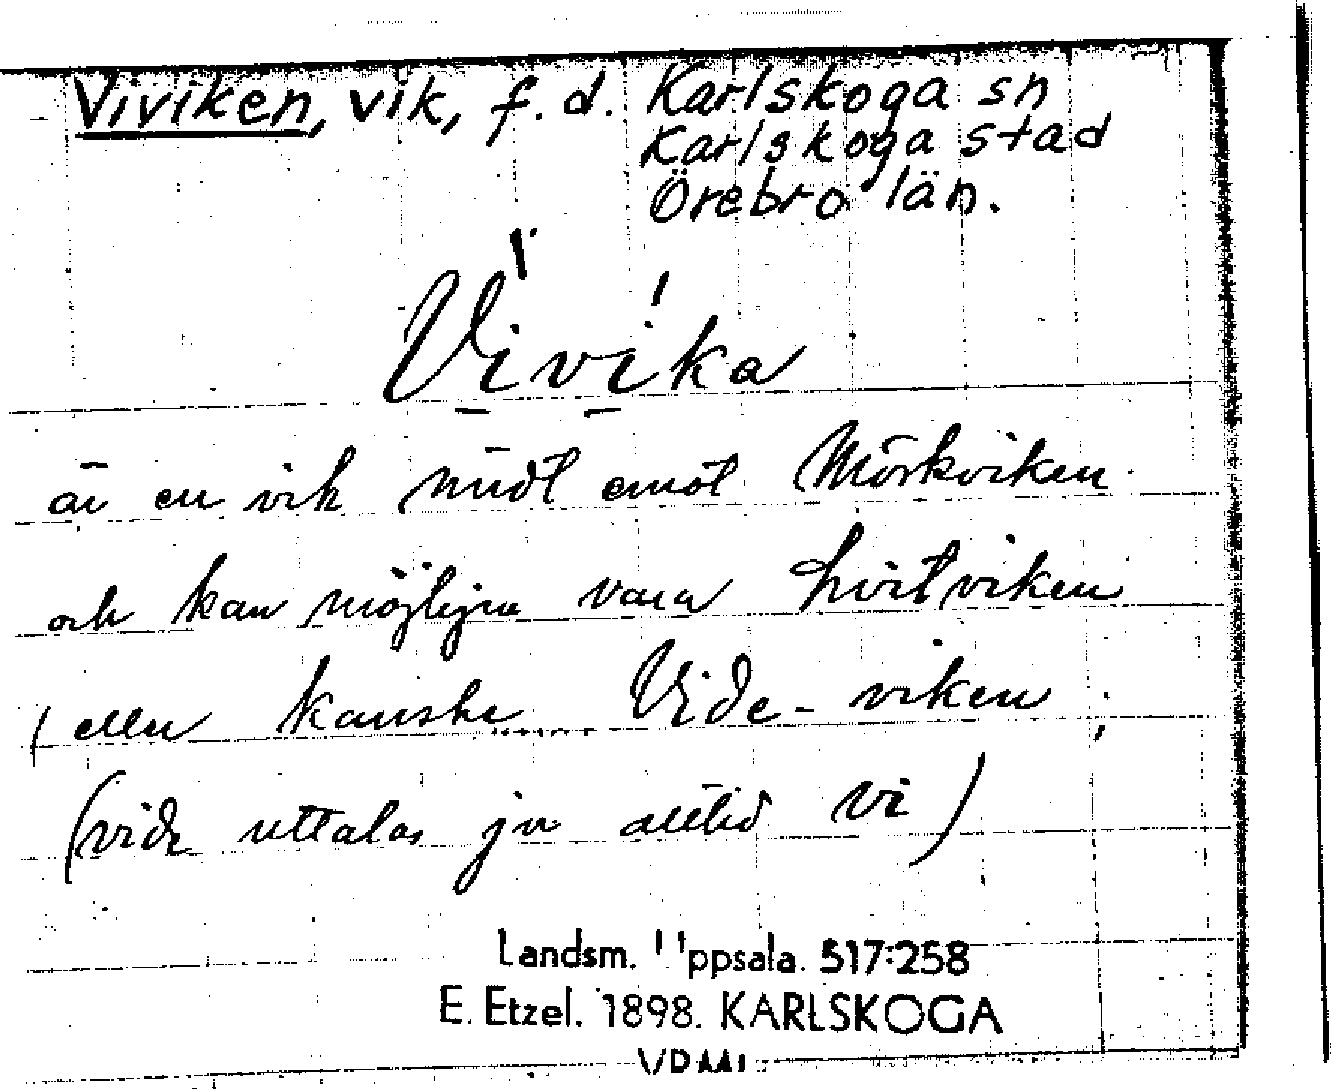 Viviken, vik, f.d. Karlskoga sn
Karlskoga stad
Örebro län.
Vivika
är en vik midt emot Mörkviken
och kan möjligen vara hvitviken
eller kanske Vide-viken;
(vide uttalas ju alltid vi)
Landsm. Uppsala. 517:258
E. Etzel. 1898. KARLSKOGA